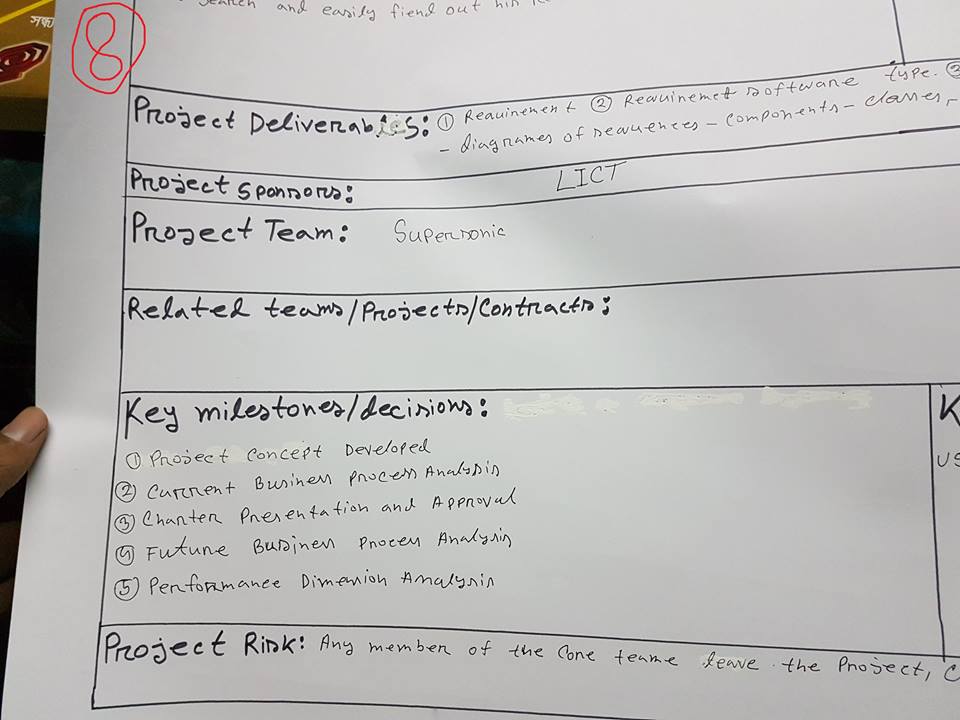 search and easily fiend out his
8
Project Deliverables: ① Requirement ② Requiremet software type. ③
- diagrames of sequences - components - classes,
Project Sponsors: LICT
Project Team: Supersonic
Related teams/Projects/Contracts:
Key milestones/decisions:
① Project Concept Developed
② Current Business Process Analysis
③ Charter Presentation and Approval
④ Future Business Proces Analysis
⑤ Performance Dimension Analysis
K
us
Project Risk: Any member of the Core teame leave the Project, C